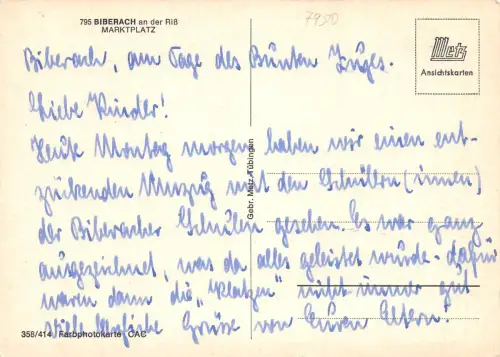 795 BIBERACH an der Riß
MARKTPLATZ
79500
Metz
Ansichtskarten
Biberach, am Tage des Bunten Zuges.
Liebe Kinder!
Heute Montag morgen haben wir einen ent-
zückenden Umzug mit den Schülern (innen)
der Biberacher Schulen gesehen. Es war ganz
ausgezeichnet, was da alles geleistet wurde - dafür
waren dann die „Platzen" nicht immer gut
Grüße von Euren Eltern!
Gebr. Metz, Tübingen
358/414 Farbphotokarte CAC